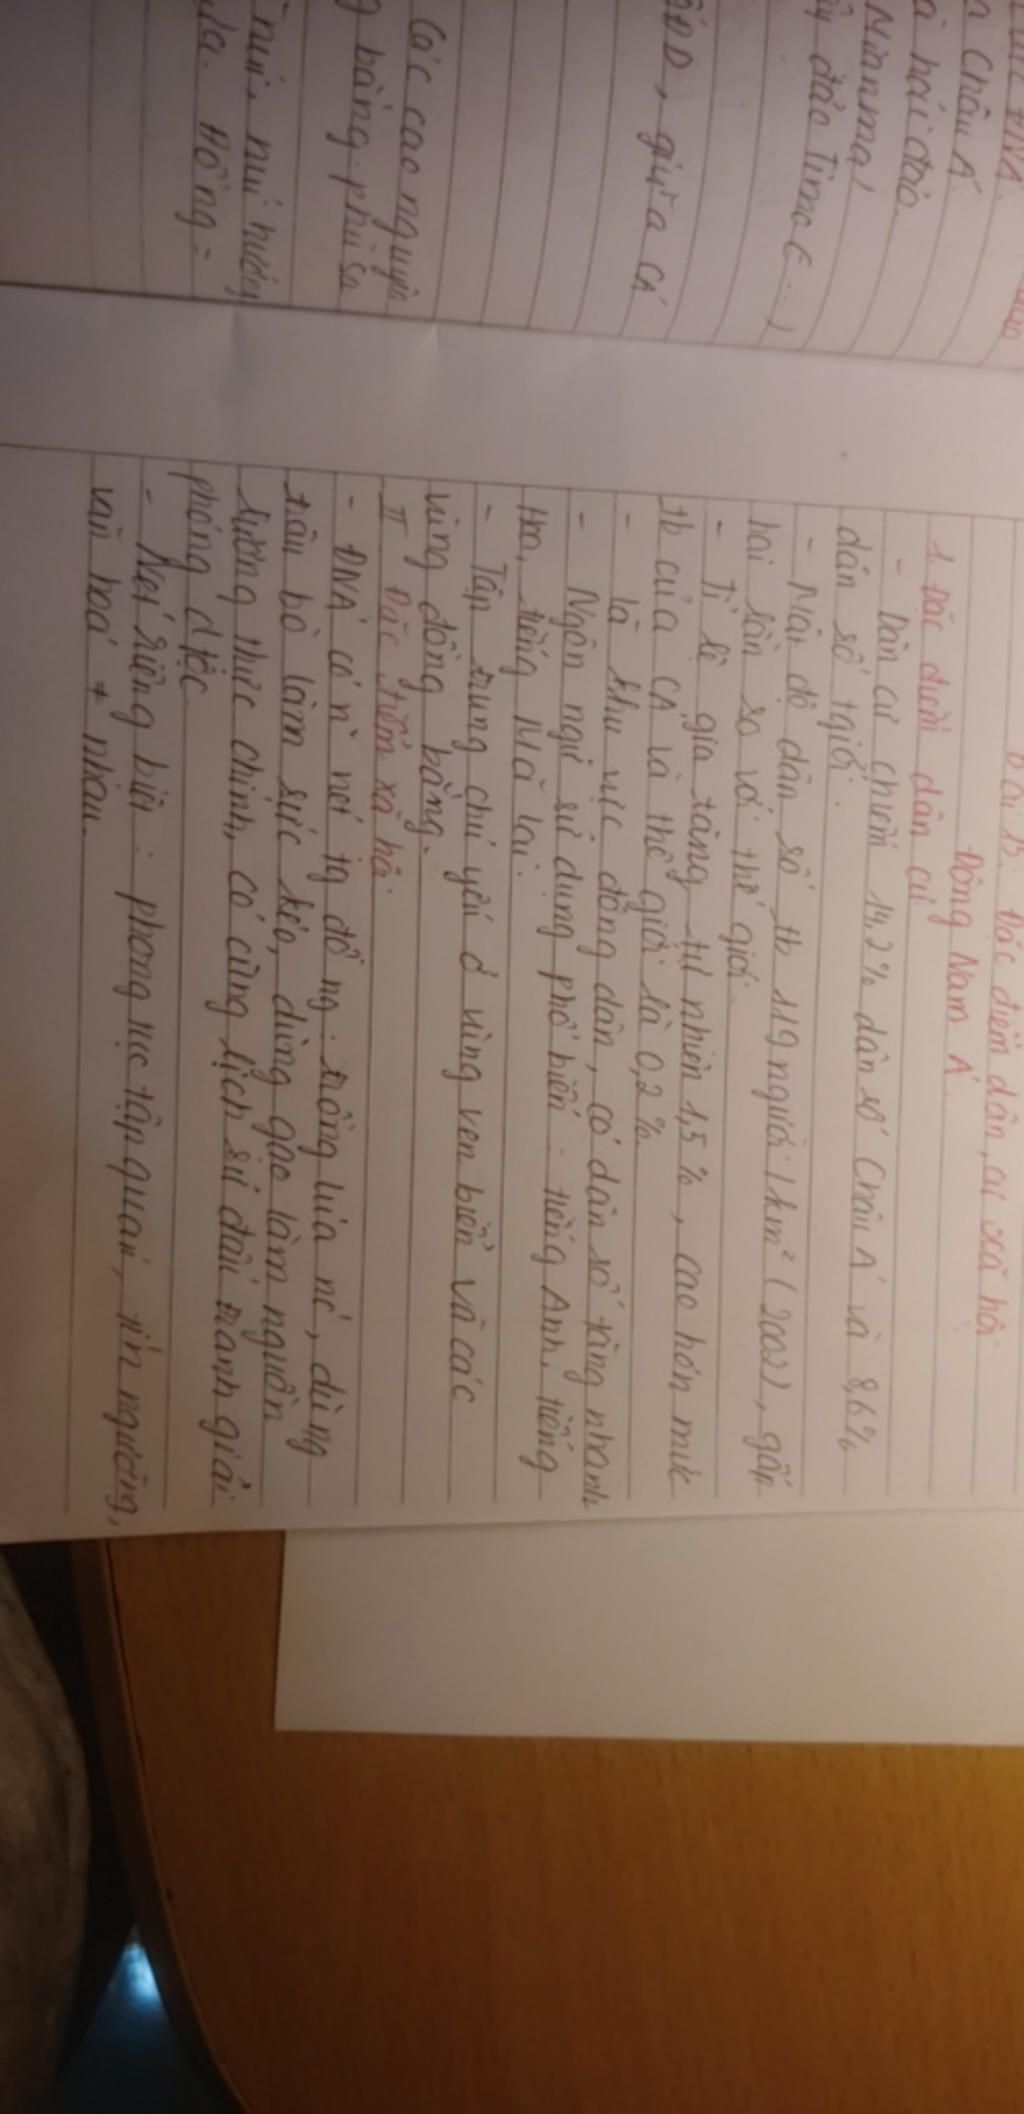 ĐNÁ
n Châu Á.
à hải đảo.
Mianma,
đảo Timo (...)
BĐD, giữa CÁ
Các cao nguyên
g bằng phù sa
núi, núi hướng
ưa. Hồng =
Bài 15. Đặc điểm dân, cư xã hội
Đông Nam Á.
1. Đặc điểm dân cư
- Dân cư chiếm 14,2% dân số Châu Á và 8,6%
dân số tgiới.
- Mật độ dân số tb 119 người/km² (2002), gấp
hai lần so với thế giới.
- Tỉ lệ gia tăng tự nhiên 1,5%, cao hơn mức
tb của CÁ và thế giới là 0,2%
- là khu vực đông dân, có dân số tăng nhanh
- Ngôn ngữ sử dụng phổ biến: tiếng Anh, tiếng
Hoa, tiếng Mã lai.
- Tập trung chủ yếu ở vùng ven biển và các
vùng đồng bằng.
II Đặc điểm xã hội
- ĐNÁ có n` nét tg đồng: trồng lúa nc, dùng
trâu bò làm sức kéo, dùng gạo làm nguồn
lương thực chính, có cùng lịch sử đấu tranh giải
phóng d tộc
- Nét riêng biệt: phong tục tập quán, tín ngưỡng,
văn hoá ≠ nhau.